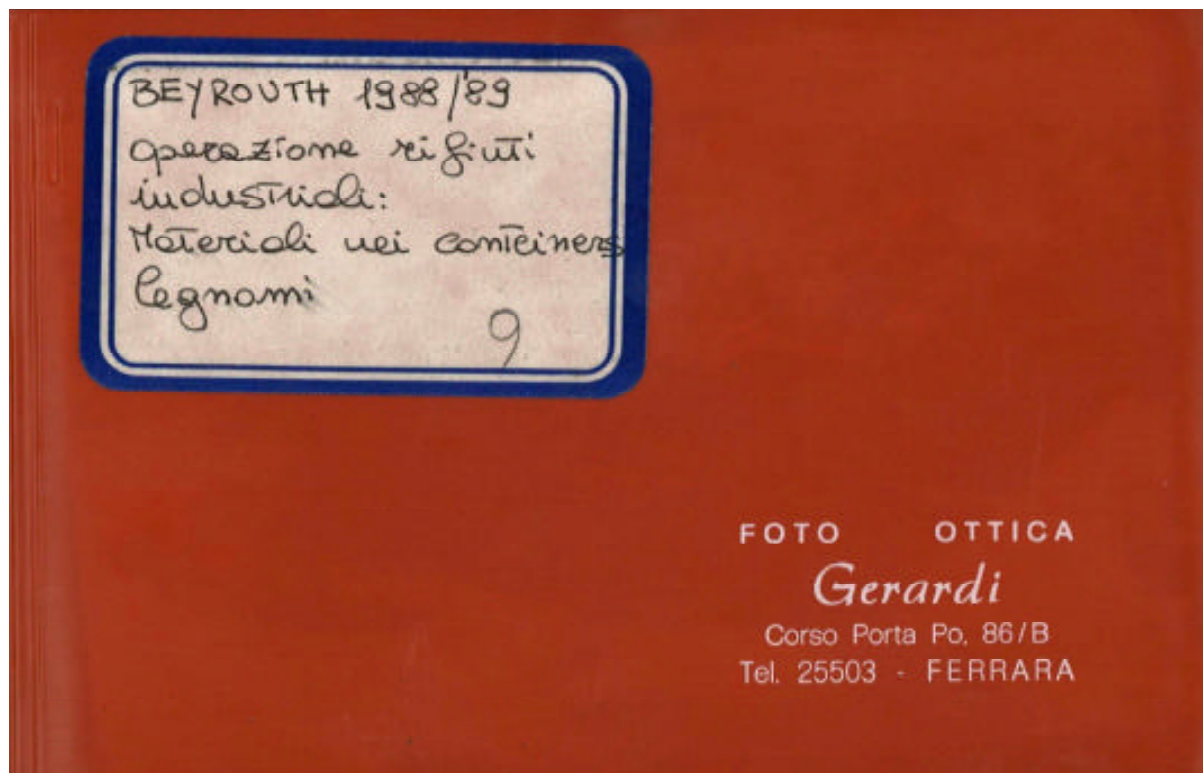 BEYROUTH 1988/'89
operazione rifiuti
industriali:
Materiali nei conteiners
legnami
9
FOTO OTTICA
Gerardi
Corso Porta Po, 86/B
Tel. 25503 - FERRARA